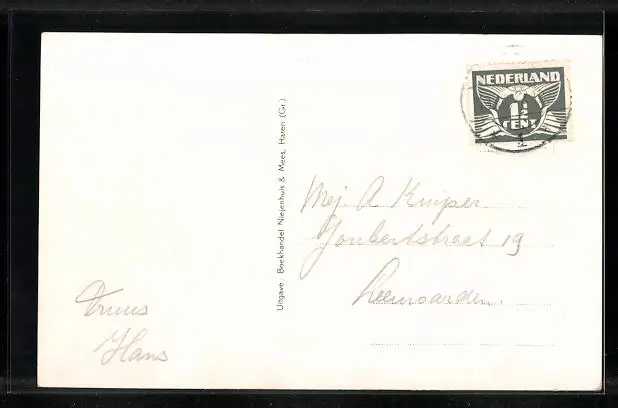 NEDERLAND
1½
CENT
Uitgave: Boekhandel Niejenhuis & Mees, Haren (Gr.)
Mej. A Kuiper
Joubertstraat 19
Leeuwarden.
Truus
Hans